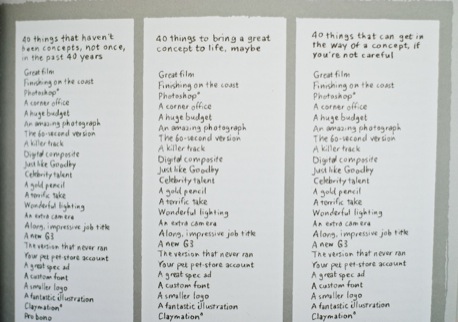 40 things that haven't
been concepts, not once,
in the past 40 years
Great film
Finishing on the coast
Photoshop®
A corner office
A huge budget
An amazing photograph
The 60-second version
A killer track
Digital composite
Just like Goodby
Celebrity talent
A gold pencil
A terrific take
Wonderful lighting
An extra camera
A long, impressive job title
A new G3
The version that never ran
Your pet pet-store account
A great spec ad
A custom font
A smaller logo
A fantastic illustration
Claymation®
Pro bono
40 things to bring a great
concept to life, maybe
Great film
Finishing on the coast
Photoshop®
A corner office
A huge budget
An amazing photograph
The 60-second version
A killer track
Digital composite
Just like Goodby
Celebrity talent
A gold pencil
A terrific take
Wonderful lighting
An extra camera
A long, impressive job title
A new G3
The version that never ran
Your pet pet-store account
A great spec ad
A custom font
A smaller logo
A fantastic illustration
Claymation®
40 things that can get in
the way of a concept, if
you're not careful
Great film
Finishing on the coast
Photoshop®
A corner office
A huge budget
An amazing photograph
The 60-second version
A killer track
Digital composite
Just like Goodby
Celebrity talent
A gold pencil
A terrific take
Wonderful lighting
An extra camera
A long, impressive job title
A new G3
The version that never ran
Your pet pet-store account
A great spec ad
A custom font
A smaller logo
A fantastic illustration
Claymation®